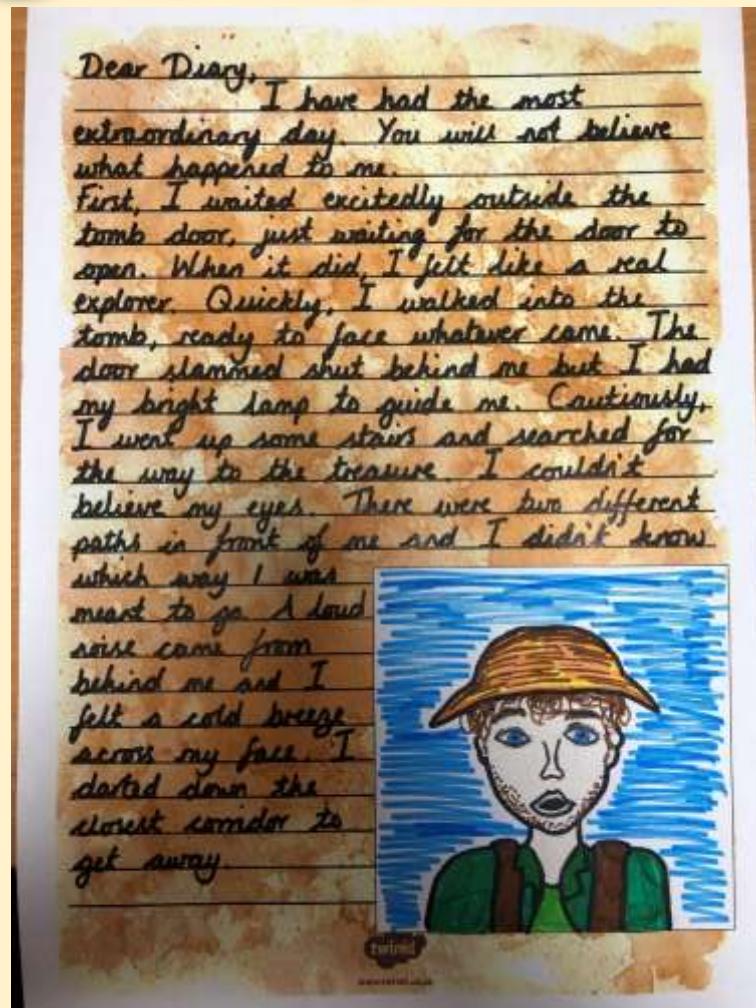 Dear Diary,
I have had the most
extraordinary day. You will not believe
what happened to me.
First, I waited excitedly outside the
tomb door, just waiting for the door to
open. When it did, I felt like a real
explorer. Quickly, I walked into the
tomb, ready to face whatever came. The
door slammed shut behind me but I had
my bright lamp to guide me. Cautiously,
I went up some stairs and searched for
the way to the treasure. I couldn't
believe my eyes. There were two different
paths in front of me and I didn't know
which way I was
meant to go. A loud
noise came from
behind me and I
felt a cold breeze
across my face. I
darted down the
closest corridor to
get away.
twinkl